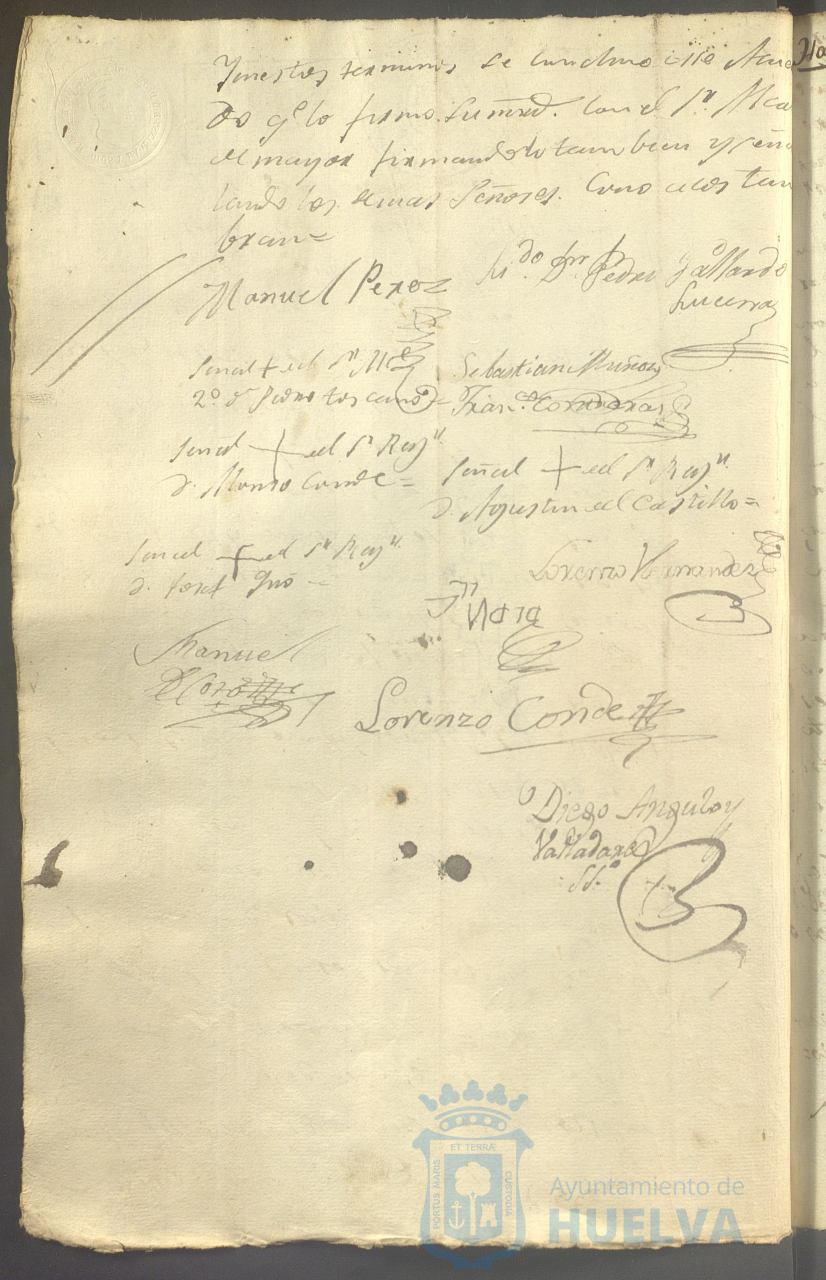 Y en estos terminos se concluio este Acue
do qe. lo firmo Su mrd. con el Sr. Alca
de mayor firmandolo tambien y seña
lando los demas Señores. Como acostun
bran=
Manuel Perez
Lido. Dn. Pedro Gallardo
Lucerna
Señal + del Sr. Alce.
2º. Dn. Pedro toscano =
Sebastian Muñoz
Franco. Contreras
Señal + del Sr. Rexr.
D. Alonso Conde =
Señal + del Sr. Rexr.
D. Agustin del Castillo =
Señal + del Sr. Rexr.
D. Josef
Lorenzo Hernandez
Manuel
Lorenzo Conde
Diego Angulo y
Valladares
SSno.
ET TERRÆ
PORTUS MARIS
CUSTODIA
Ayuntamiento de
HUELVA